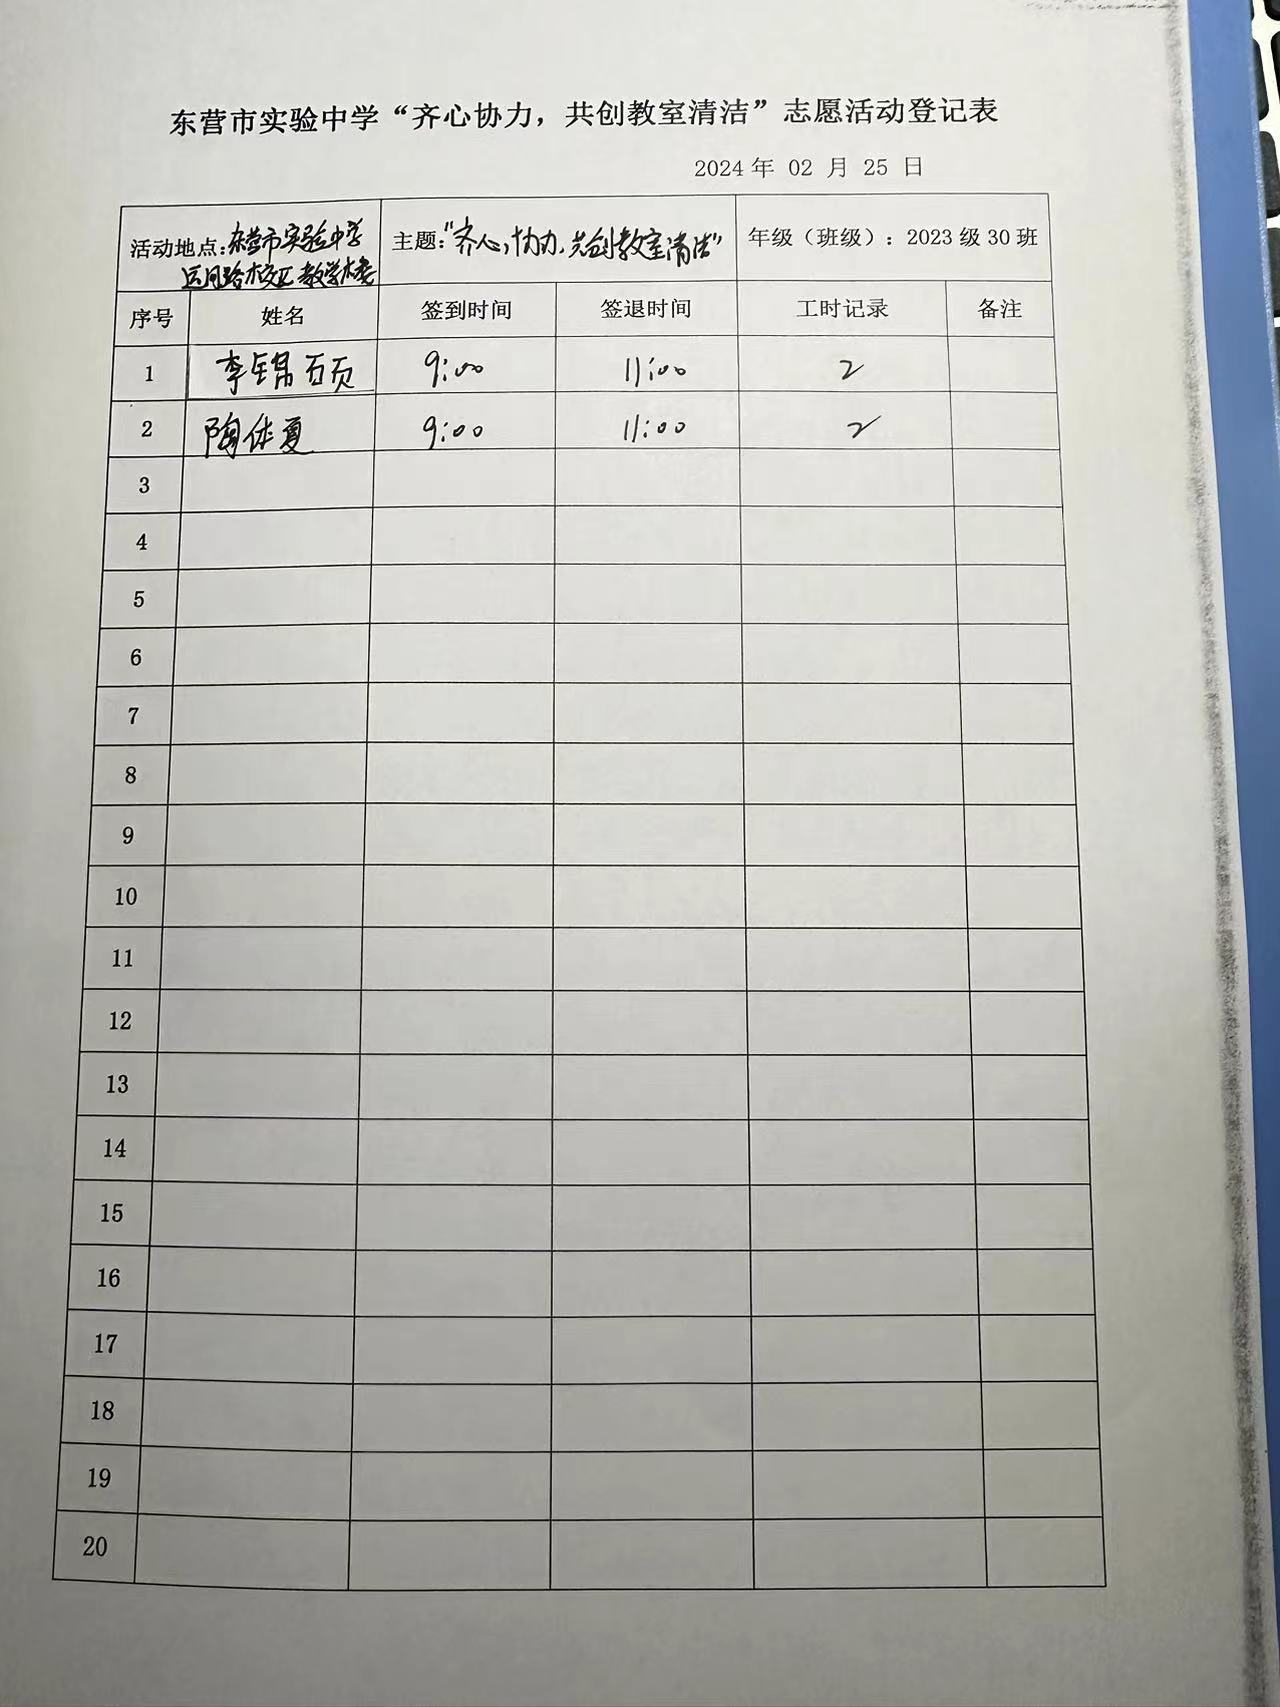 东营市实验中学“齐心协力，共创教室清洁”志愿活动登记表
2024年 02 月 25 日
活动地点：东营市实验中学 主题：“齐心协力，共创教室清洁” 年级（班级）：2023 级 30 班
运河路校区教学楼
序号 姓名 签到时间 签退时间 工时记录 备注
1 李锦 9:00 11:00 2
2 陶休夏 9:00 11:00 2
3
4
5
6
7
8
9
10
11
12
13
14
15
16
17
18
19
20